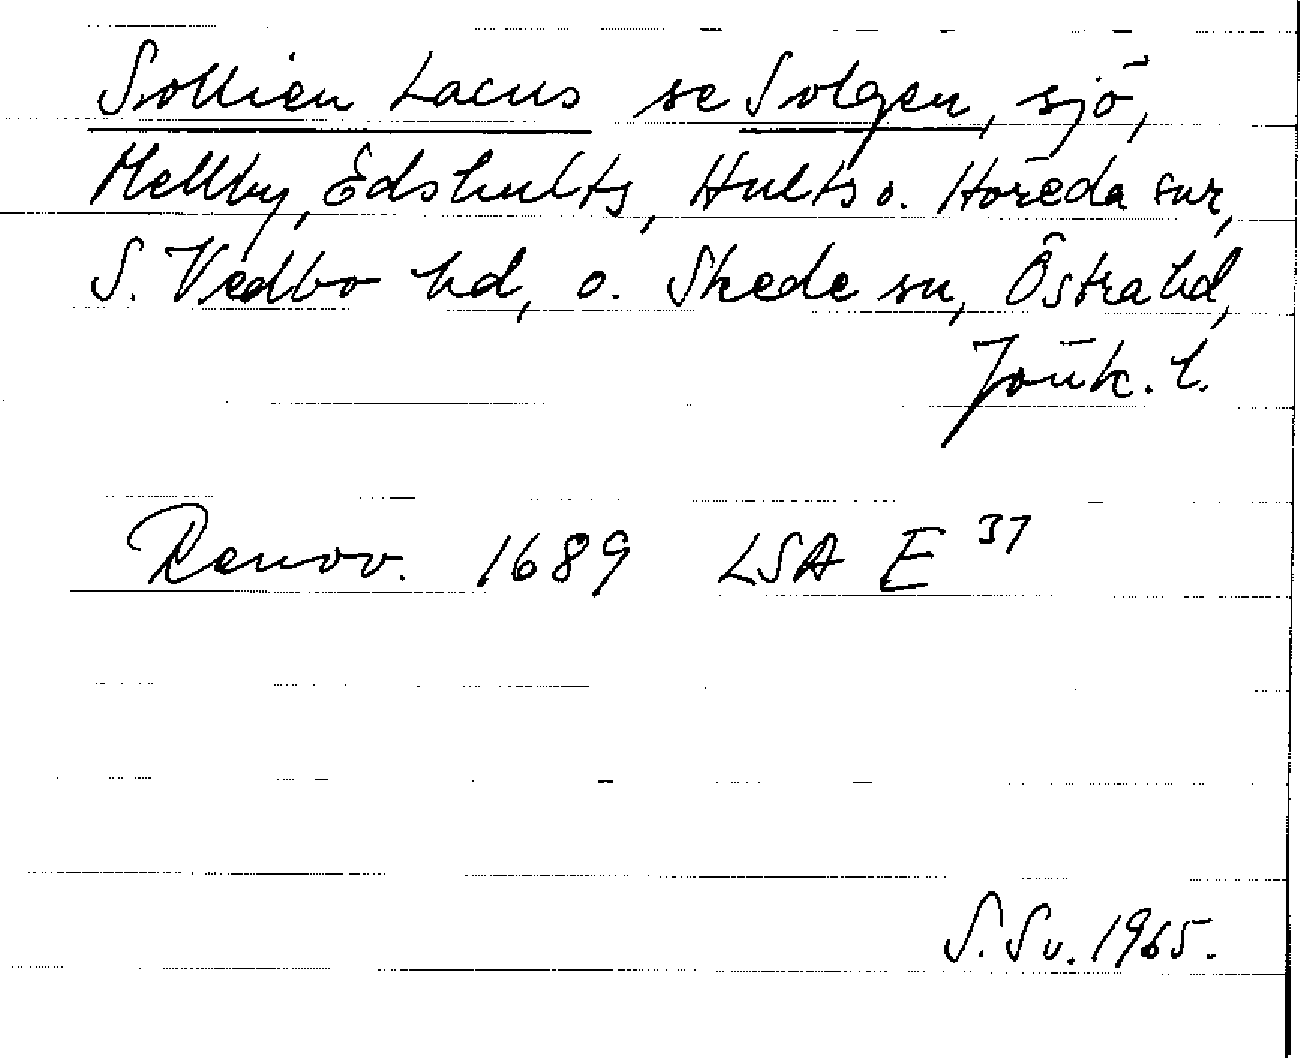 Sollien Lacus se Solgen, sjö,
Mellby, Edshults, Hults o. Höreda snr,
S. Vedbo hd, o. Skede sn, Östra hd,
Jönk. l.
Renov. 1689 LSA E 37
S. Sv. 1965.